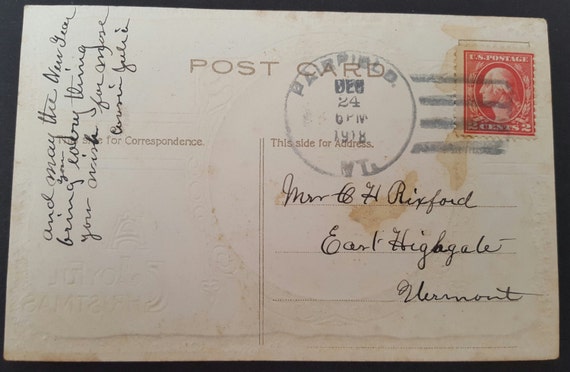 and may the New Year
bring you every thing
you wish for
Cousin Julia
POST CARD
FAIRFIELD,
DEC
24
6 PM
1918
VT.
U.S. POSTAGE
2 CENTS 2
e for Correspondence.
This side for Address.
Mrs C H Rixford
East Highgate
Vermont
JOYFUL
CHRISTMAS